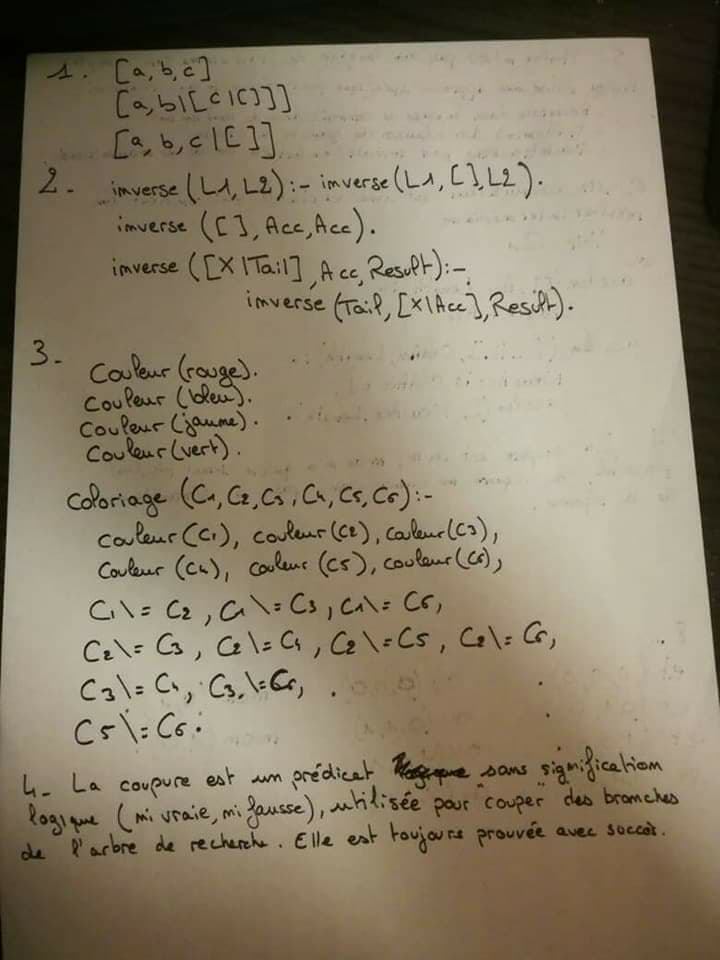 1. [a,b,c]
[a,b|[c|[]]]
[a,b,c|[]]
2- inverse(L1,L2):- inverse(L1,[],L2).
inverse([],Acc,Acc).
inverse([X|Tail],Acc,Result):-
inverse(Tail,[X|Acc],Result).
3-
Couleur(rouge).
Couleur(bleu).
Couleur(jaune).
Couleur(vert).
Coloriage (C1,C2,C3,C4,C5,C6):-
couleur(C1), couleur(C2), couleur(C3),
Couleur(C4), couleur(C5), couleur(C6),
C1\=C2, C1\=C3, C1\=C6,
C2\=C3, C2\=C4, C2\=C5, C2\=C6,
C3\=C4, C3\=C6,
C5\=C6.
4- La coupure est un prédicat sans signification
logique (ni vraie, ni fausse), utilisée pour "couper" des branches
de l'arbre de recherche. Elle est toujours prouvée avec succès.